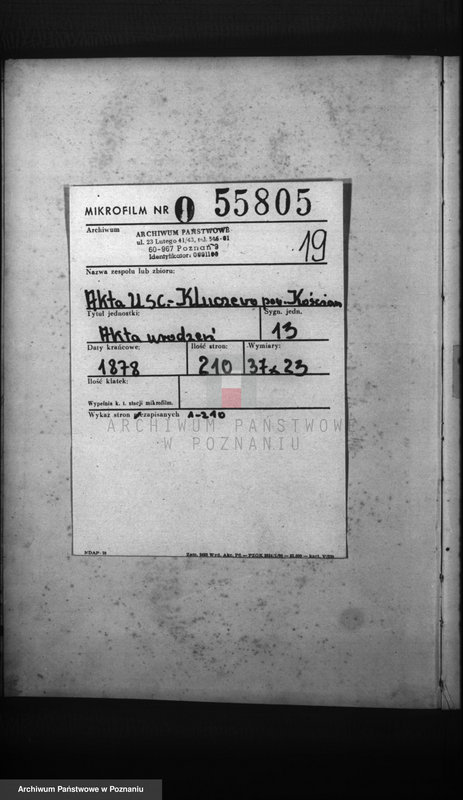 MIKROFILM NR O 55805
Archiwum
ARCHIWUM PAŃSTWOWE
ul. 23 Lutego 41/43, tel. 546-01
60-967 Poznań 9
Identyfikator: 0001100
19
Nazwa zespołu lub zbioru:
Akta USC - Kluczewo pow. Kościan
Tytuł jednostki:
Sygn. jedn.
Akta urodzeń
13
Daty krańcowe:
Ilość stron:
Wymiary:
1878
210
37x23
Ilość klatek:
Wypełnia k. t. stacji mikrofilm.
Wykaz stron zapisanych 1-210
ARCHIWUM PAŃSTWOWE
W POZNANIU
NDAP-
Archiwum Państwowe w Poznaniu